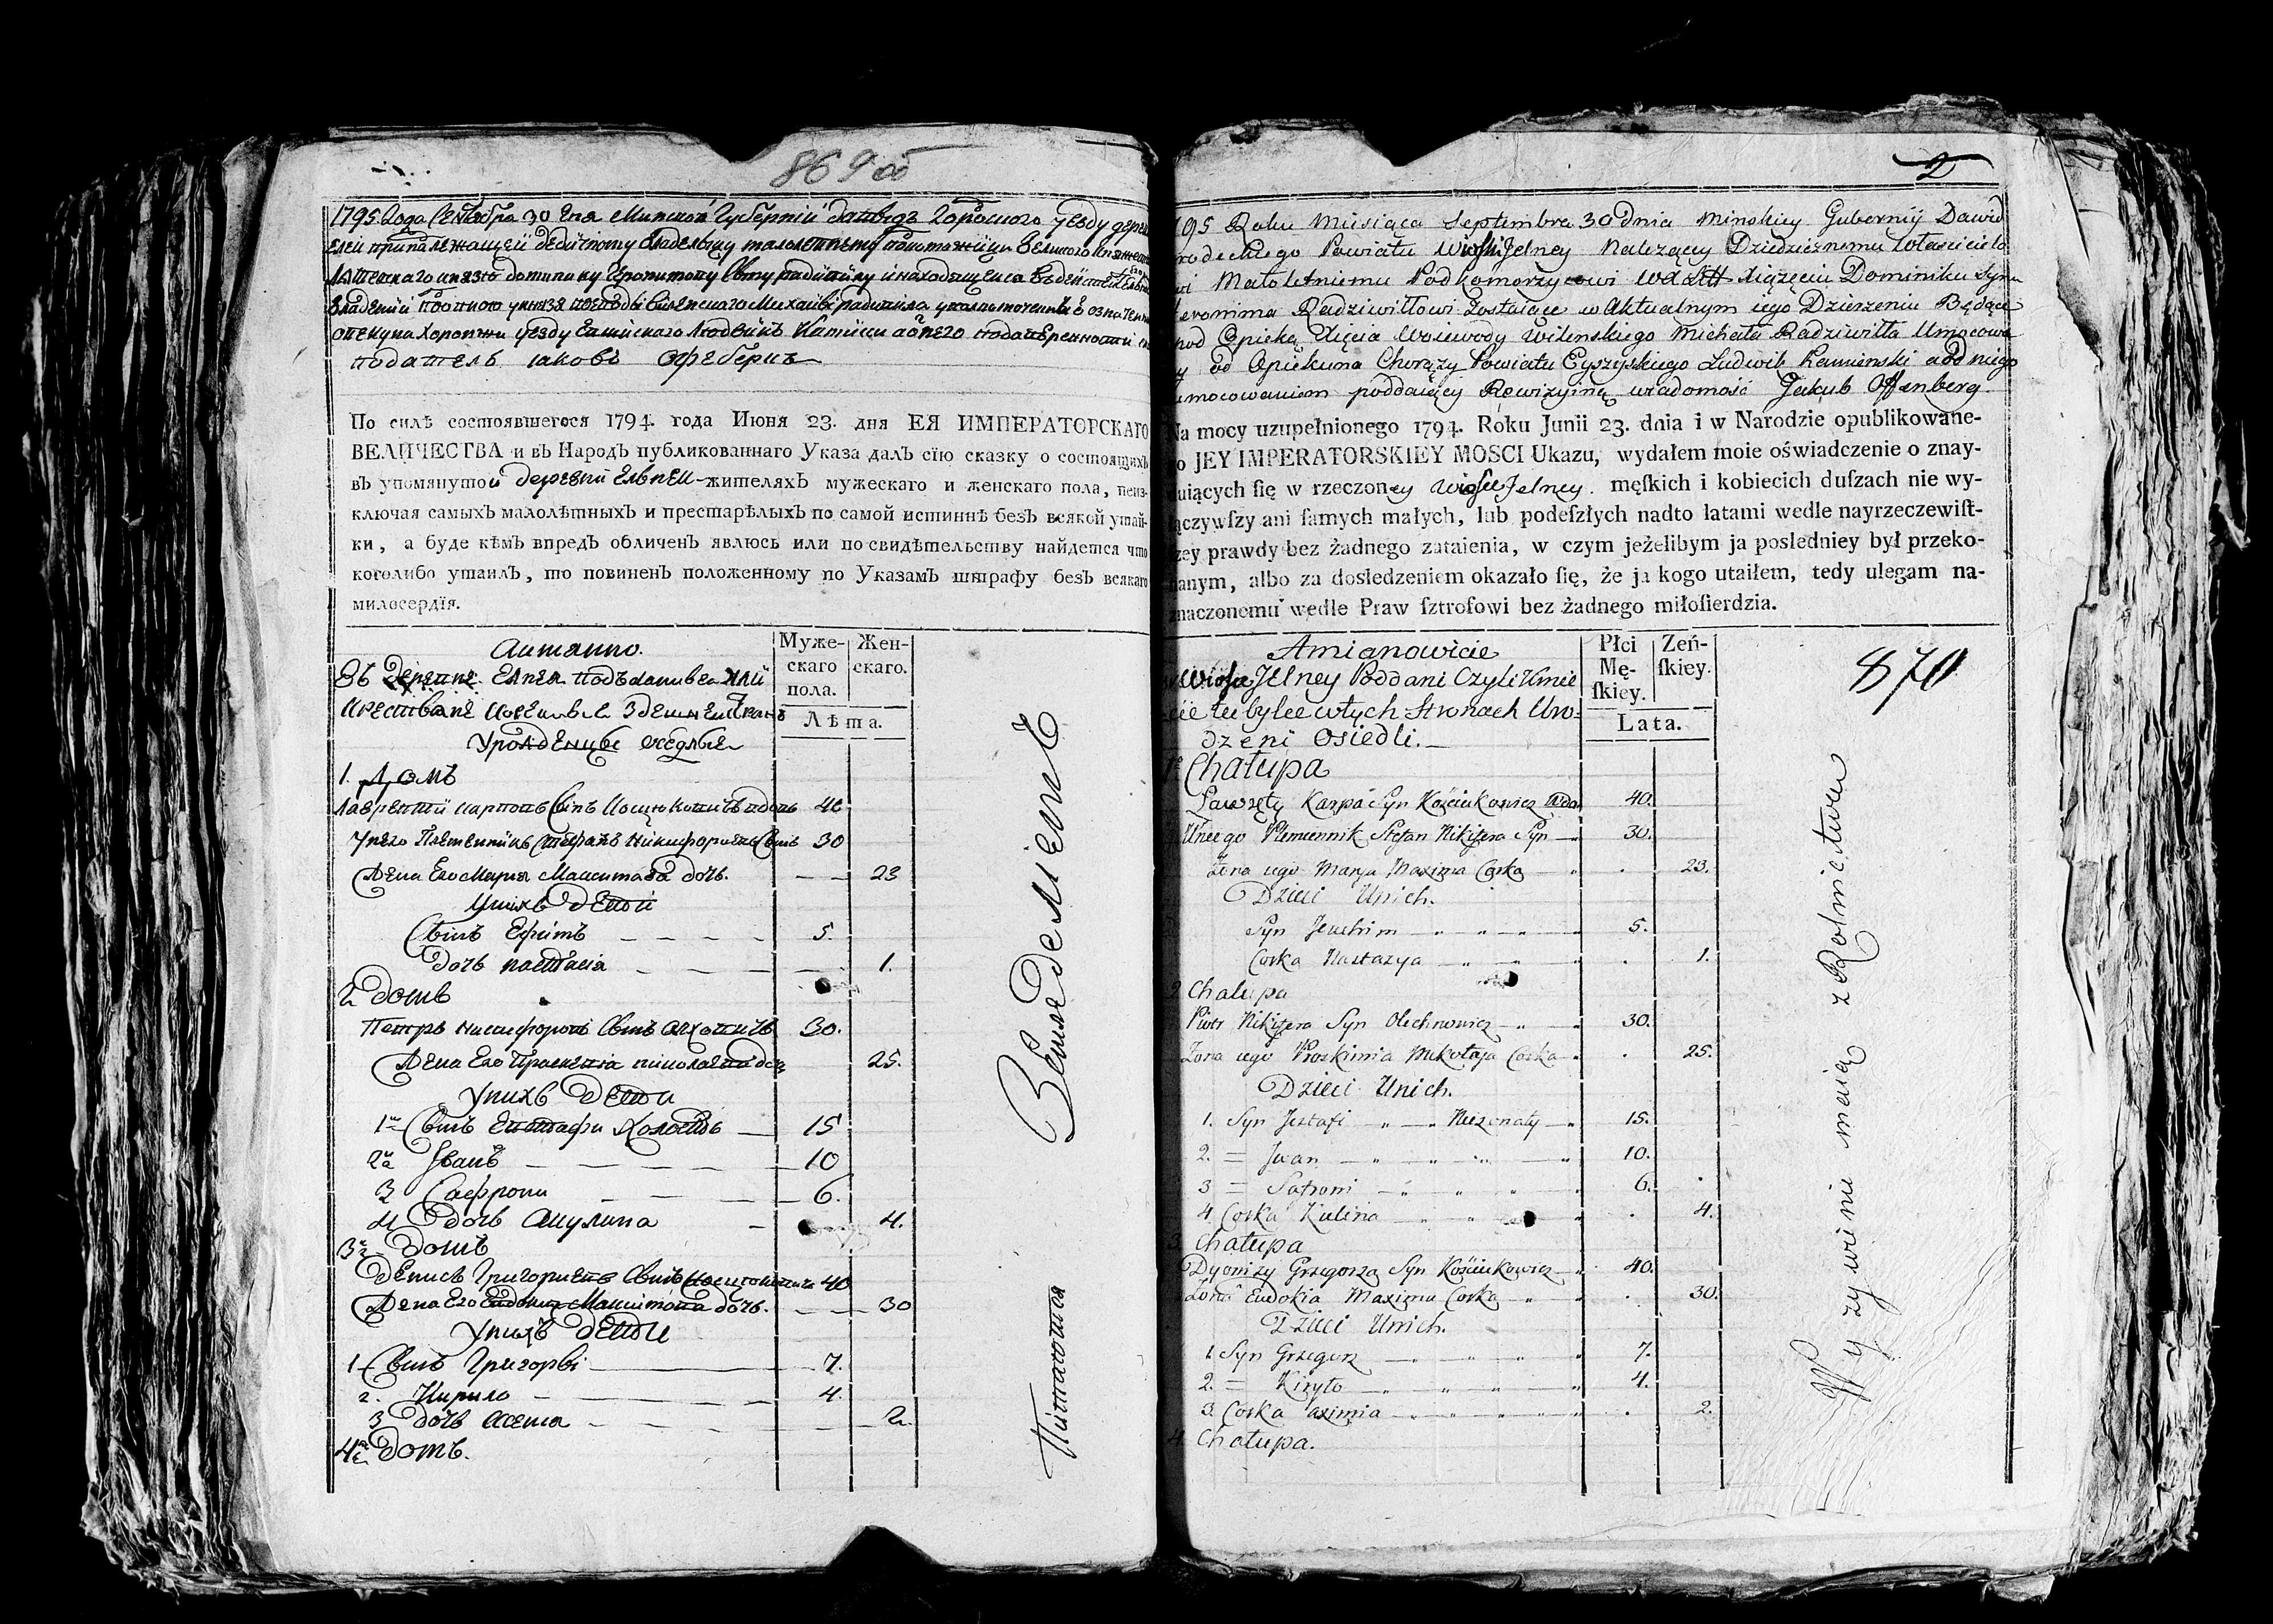 869 об
1795. Года Сентебра 30 дня Минской Губернии давыдъ Городского уезду
принадлежащей дедичному владельцу малолетнему Великого
князю доминику Сыну радивилу и находящиеся въ
Владении воеводы виленского Михаила радивила
опекуна Хорожи уезду Людвикъ
податель Иаковъ Офеберхъ
По силѣ состоявшегося 1794. года Июня 23. дня ЕЯ ИМПЕРАТОРСКАГО
ВЕЛИЧЕСТВА и въ Народъ публикованнаго Указа далъ сїю сказку о состоящихъ
въ упомянутой деревни Ельней жителяхъ мужескаго и женскаго пола, неиз-
ключая самыхъ малолѣтныхъ и престарѣлыхъ по самой истиннѣ безъ всякой утай-
ки, а буде кѣмъ впредь обличенъ явлюсь или по свидѣтельству найдется что
коголибо утаилъ, то повиненъ положенному по Указамъ штрафу безъ всякаго
милосердїя.
Аимянно.
Муже-скаго пола.
Жен-скаго.
Лѣта.
Въ деревне Елнея подъданные или
Уроженцы оседлые
1. Домъ
Лаврентий Карповъ Сынъ 40
У него Племенникъ Стефанъ Никифоровъ Сынъ 30
Жена Его Мария Максимова дочь. — — 23
У нихъ дети
Сынъ Ефимъ — — — — 5.
дочь настасия — — — — 1.
2 домъ
Петръ Никифоровъ Сынъ 30.
Жена Его николаева доч 25.
У нихъ дети
1й Сынъ Евстафи Холостъ — 15
2й Иванъ — — — — 10
3 Сафрони — — — 6.
4 дочь Акулина — 4.
3й домъ
Денисъ Григориевъ Сынъ 40
Жена Его Евдокия Максимова дочь. — — 30
У нихъ дети
1 Сынъ Григорей — — 7.
2. Кирило — — — 4.
3 дочь — — — 2.
4й домъ.
Питаются Земледелиемъ
2
870
1795 Roku Miesiąca Septembra 30 dnia Minskiey Gubernij Dawid
rodeckiego Powiatu Wioski Jelney Należący Dziedzicznemu Właścicielo
wi Małoletniemu Podkomorzycowi Xiążęciu Dominiku Synu
eronima Radziwiłłowi Zostaiące w Aktualnym iego Dzierżeniu Będące
pod Opieką Xięcia Woiewody Wilenskiego Michała Radziwiłła Umocowa
y od Opiekuna Chorąży Powiatu Eyszyskiego Ludwik Kamienski a od niego
umocowaniem poddaiący Rewizyiną wiadomość Jakub Offenberg.
Na mocy uzupełnionego 1794. Roku Junii 23. dnia i w Narodzie opublikowane-
go JEY IMPERATORSKIEY MOSCI Ukazu, wydałem moie oświadczenie o znay-
duiących ſię w rzeczoney Wiosce Jelney. męſkich i kobiecich duſzach nie wy-
łączywſzy ani ſamych małych, lub podeſzłych nadto latami wedle nayrzeczewiſt-
ſzey prawdy bez żadnego zataienia, w czym jeżelibym ja posledniey był przeko-
nanym, albo za dosledzeniem okazało ſię, że ja kogo utaiłem, tedy ulegam na-
znaczonemu wedle Praw ſztrofowi bez żadnego miłoſierdzia.
Amianowicie
Płci Mę-ſkiey.
Zeń-ſkiey.
Lata.
Wiosce Jelney Poddani Czyli Kmie
cie tu bylce w tych Stronach Uro-
dzeni Osiedli.—
1e Chałupa
Ławrzęty Karpa Syn Kościukowicz Wdo. 40.
U niego Plemiennik Stefan Nikifera Syn 30.
Żona iego Marya Maxima Corka 23.
Dzieci Unich.
Syn Jeuchim 5.
Corka Nastazya 1.
2 Chałupa
Piotr Nikifera Syn Olechnowicz 30.
Żona iego Proskimia Mikołaja Corka 25.
Dzieci Unich.
1. Syn Jestafi Nieżonaty 15.
2. = Jwan 10.
3 = Safroni 6.
4 Corka Kulina 4.
3. Chałupa
Dyonizy Grzegorza Syn Kościukowicz 40.
Żona Eudokia Maxima Corka 30.
Dzieci Unich.
1. Syn Grzegorz 7.
2. = Kiryło 4.
3. Corka Aximia 2.
4 Chałupa.
Wyżywienie maią z Rolnictwa